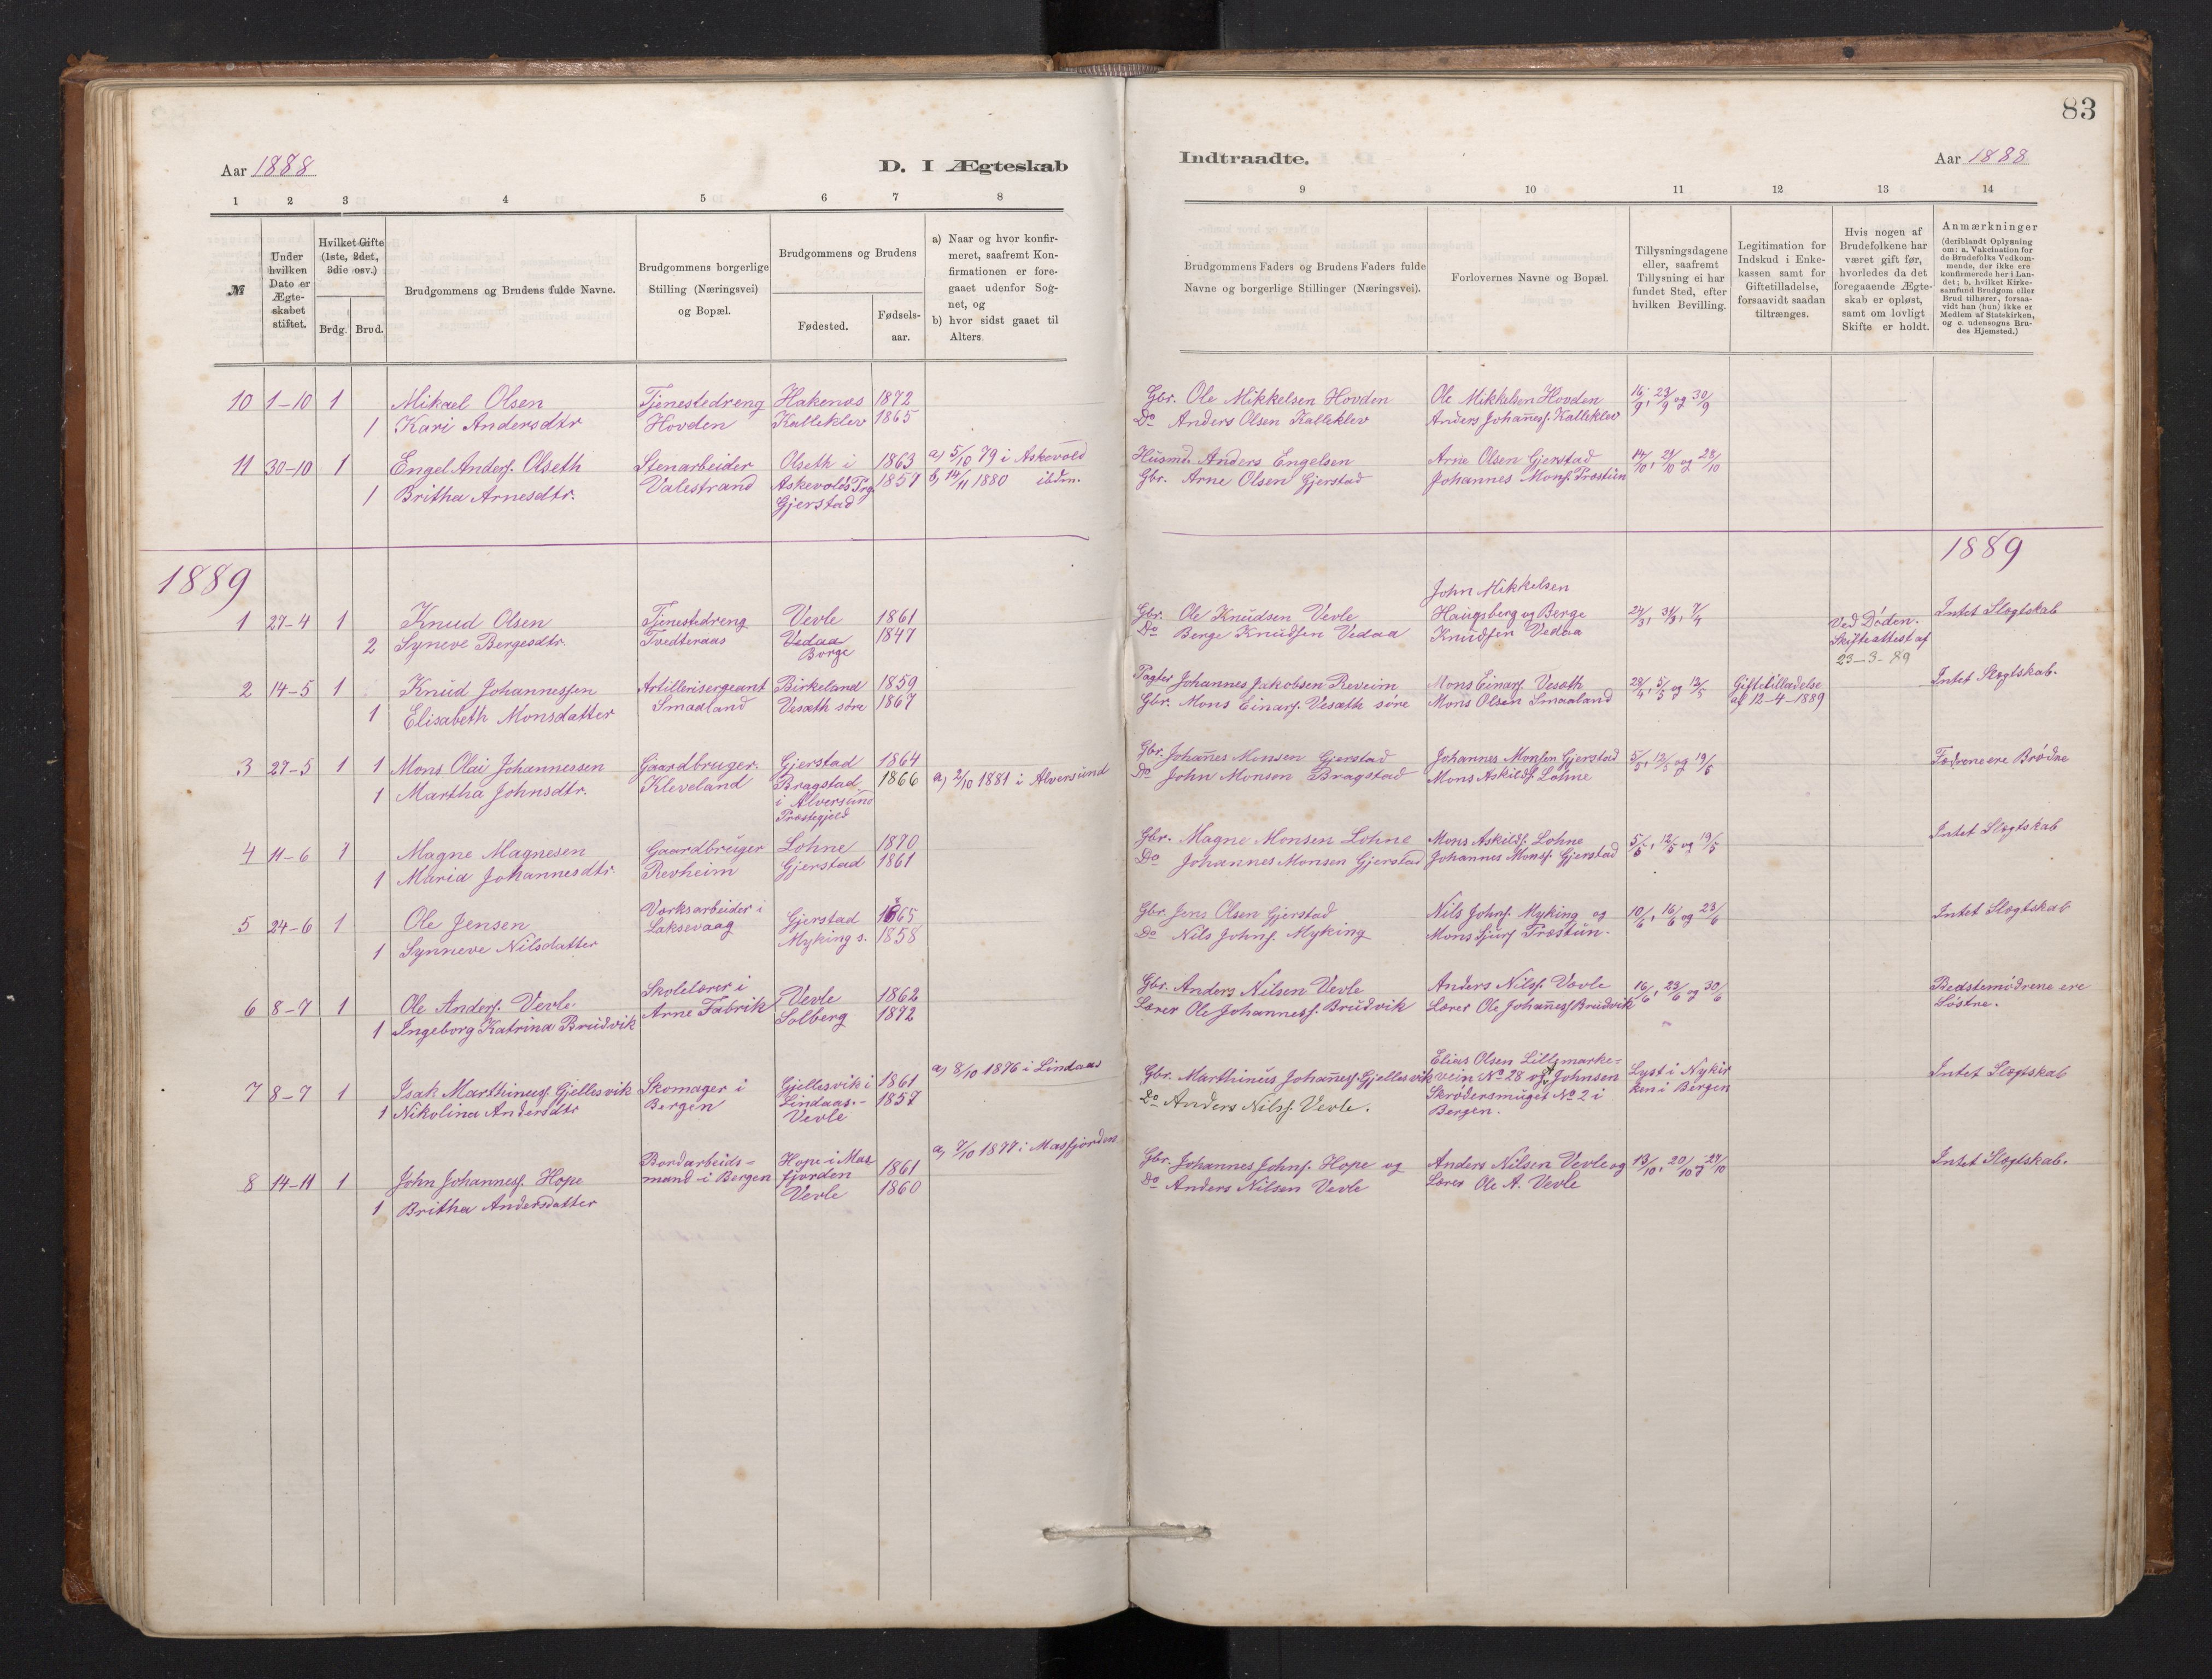 83
Aar 1888
D. I Ægteskab
Indtraadte.
Aar 1888
1 2 3 4 5 6 7 8
9 10 11 12 13 14
№
Under
hvilken
Dato er
Ægte-
skabet
stiftet.
Hvilket Gifte
(1ste, 2det,
3die osv.)
Brdg. Brud.
Brudgommens og Brudens fulde Navne.
Brudgommens borgerlige
Stilling (Næringsvei)
og Bopæl.
Brudgommens og Brudens
Fødested.
Fødsels-
aar.
a) Naar og hvor konfir-
meret, saafremt Kon-
firmationen er fore-
gaaet udenfor Sog-
net, og
b) hvor sidst gaaet til
Alters.
Brudgommens Faders og Brudens Faders fulde
Navne og borgerlige Stillinger (Næringsvei).
Forlovernes Navne og Bopæl.
Tillysningsdagene
eller, saafremt
Tillysning ei har
fundet Sted, efter
hvilken Bevilling.
Legitimation for
Indskud i Enke-
kassen samt for
Giftetilladelse,
forsaavidt saadan
tiltrænges.
Hvis nogen af
Brudefolkene har
været gift før,
hvorledes da det
foregaaende Ægte-
skab er opløst,
samt om lovligt
Skifte er holdt.
Anmærkninger
(deriblandt Oplysning
om: a. Vakcination for
de Brudefolks Vedkom-
mende, der ikke ere
konfirmerede her i Lan-
det; b. hvilket Kirke-
samfund Brudgom eller
Brud tilhører, forsaa-
vidt han (hun) ikke er
Medlem af Statskirken,
og c. udensogns Bru-
des Hjemsted.)
10 1-10 1 Mikael Olsen Tjenestedreng Hakenæs 1872 Gbr. Ole Mikkelsen Hovden Ole Mikkelsen Hovden 16/9, 23/9 og 30/9
1 Kari Andersdtr Hovden Kalleklev 1865 Do Anders Olsen Kalleklev Anders Johañesf. Kalleklev
11 30-10 1 Engel Andersf. Olseth Stenarbeider Olseth i 1863 a) 5/10 79 i Askevold Husmd. Anders Engelsen Arne Olsen Gjerstad 14/10, 21/10 og 28/10
1 Britha Arnesdtr. Valestrand Askevolds Prg. 1857 b) 14/11 1880 ibdm. Gbr. Arne Olsen Gjerstad Johannes Monsf. Træstün
Gjerstad
1889
1889
1 27-4 1 Knud Olsen Tjenestedreng Vevle 1861 Gbr. Ole Knudsen Vevle John Mikkelsen 24/3, 31/3, 7/4 Intet Slægtskab
2 Syneve Bergesdtr. Tvedteraas Vedaa 1847 Do Berge Knudsen Vedaa Haugsberg og Berge Ved Døden.
Borge Knudsen Vedaa Skifteattest af
23-3-89
2 14-5 1 Knud Johannessen Artillerisergeant Birkeland 1859 Pagter Johannes Jakobsen Reveim Mons Einarsf. Vesæth 28/4, 5/5 og 12/5 Giftetilladelse Intet Slægtskab.
1 Elisabeth Monsdatter Smaaland Vesæth søre 1867 Gbr. Mons Einarsf. Vesæth søre Mons Olsen Smaaland af 12-4-1889
3 27-5 1 1 Mons Olai Johannessen Gaardbruger. Gjerstad 1864 Gbr. Johañes Monsen Gjerstad Johannes Monsen Gjerstad 5/5, 12/5 og 19/5 Fædrene ere Brødre
1 Martha Johnsdtr. Kleveland Bragstad 1866 a) 2/10 1881 i Alversund Do John Monsen Bragstad Mons Askildsf. Lohne
i Alversund
Præstegjeld
4 11-6 1 Magne Magnesen Gaardbruger Lohne 1870 Gbr. Magne Monsen Lohne Mons Askildsf. Lohne 5/5, 12/5 og 19/5 Intet Slægtskab
1 Maria Johannesdtr. Revheim Gjerstad 1861 Do Johannes Monsen Gjerstad Johannes Monsf. Gjerstad
5 24-6 1 Ole Jensen Værksarbeider i Gjerstad 1865 Gbr. Jens Olsen Gjerstad Nils Johnsf. Myking og 10/6, 16/6 og 23/6 Intet Slægtskab
1 Synneve Nilsdatter Laksevaag Myking s. 1858 Do Nils Johnsf. Myking Mons Sjursf Træstün.
6 8-7 1 Ole Andersf. Vevle Skolelærer i Vevle 1862 Gbr. Anders Nilsen Vevle Anders Nilsf. Vævle 16/6, 23/6 og 30/6 Bedstemødrene ere
1 Ingeborg Katrina Brudvik Arne Fabrik Solberg 1872 Lærer Ole Johannesf. Brudvik Lærer Ole Johañesf Brudvik Søstre.
7 8-7 1 Isak Marthinusf. Gjellesvik Skomager i Gjellesvik i 1861 a) 8/10 1876 i Lindaas Gbr. Marthinus Johañesf. Gjellesvik Elias Olsen Lille marke- Lyst i Nykir Intet Slægtskab
1 Nikolina Andersdtr Bergen Lindaas.- 1857 Do Anders Nilsf. Vevle. vein № 28 og Johnsen ken i Bergen
Vevle Skrødersmuget № 2 i
Bergen.
8 14-11 1 John Johannesf. Hope Bordarbeids- Hope i Mas 1861 a) 7/10 1877 i Masfjorden Gbr. Johannes Johnsf. Hope og Anders Nilsen Vevle og 13/10, 20/10, 27/10 Intet Slægtskab.
1 Britha Andersdatter mand i Bergen fjorden 1860 Do Anders Nilsen Vevle Lærer Ole A. Vevle
Vevle